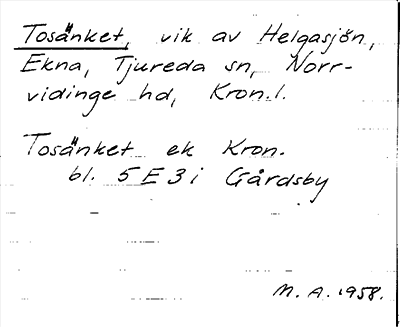 Tosänket, vik av Helgasjön,
Ekna, Tjureda sn, Norr-
vidinge hd, Kron.l.
Tosänket ek Kron.
bl. 5 E 3 i Gårdsby
M. A. 1958.